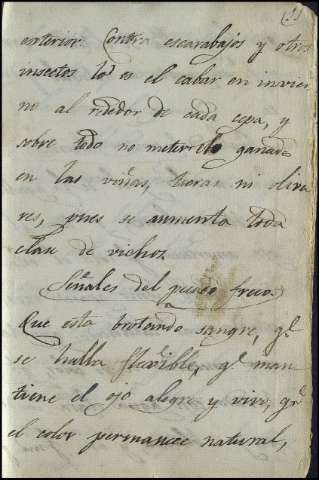 (11
exterior. Contra escarabajos y otros
insectos lo es el cabar en invier
no al rededor de cada cepa, y
sobre todo no meter el ganado
en las viñas, tieras ni oliva
res, pues se aumenta toda
clase de vichos.
Señales del pescado fresco.
Que esta brotando sangre, q.e
se halla flexible, q.e man
tiene el ojo alegre y vivo, q.e
el color permanece natural,